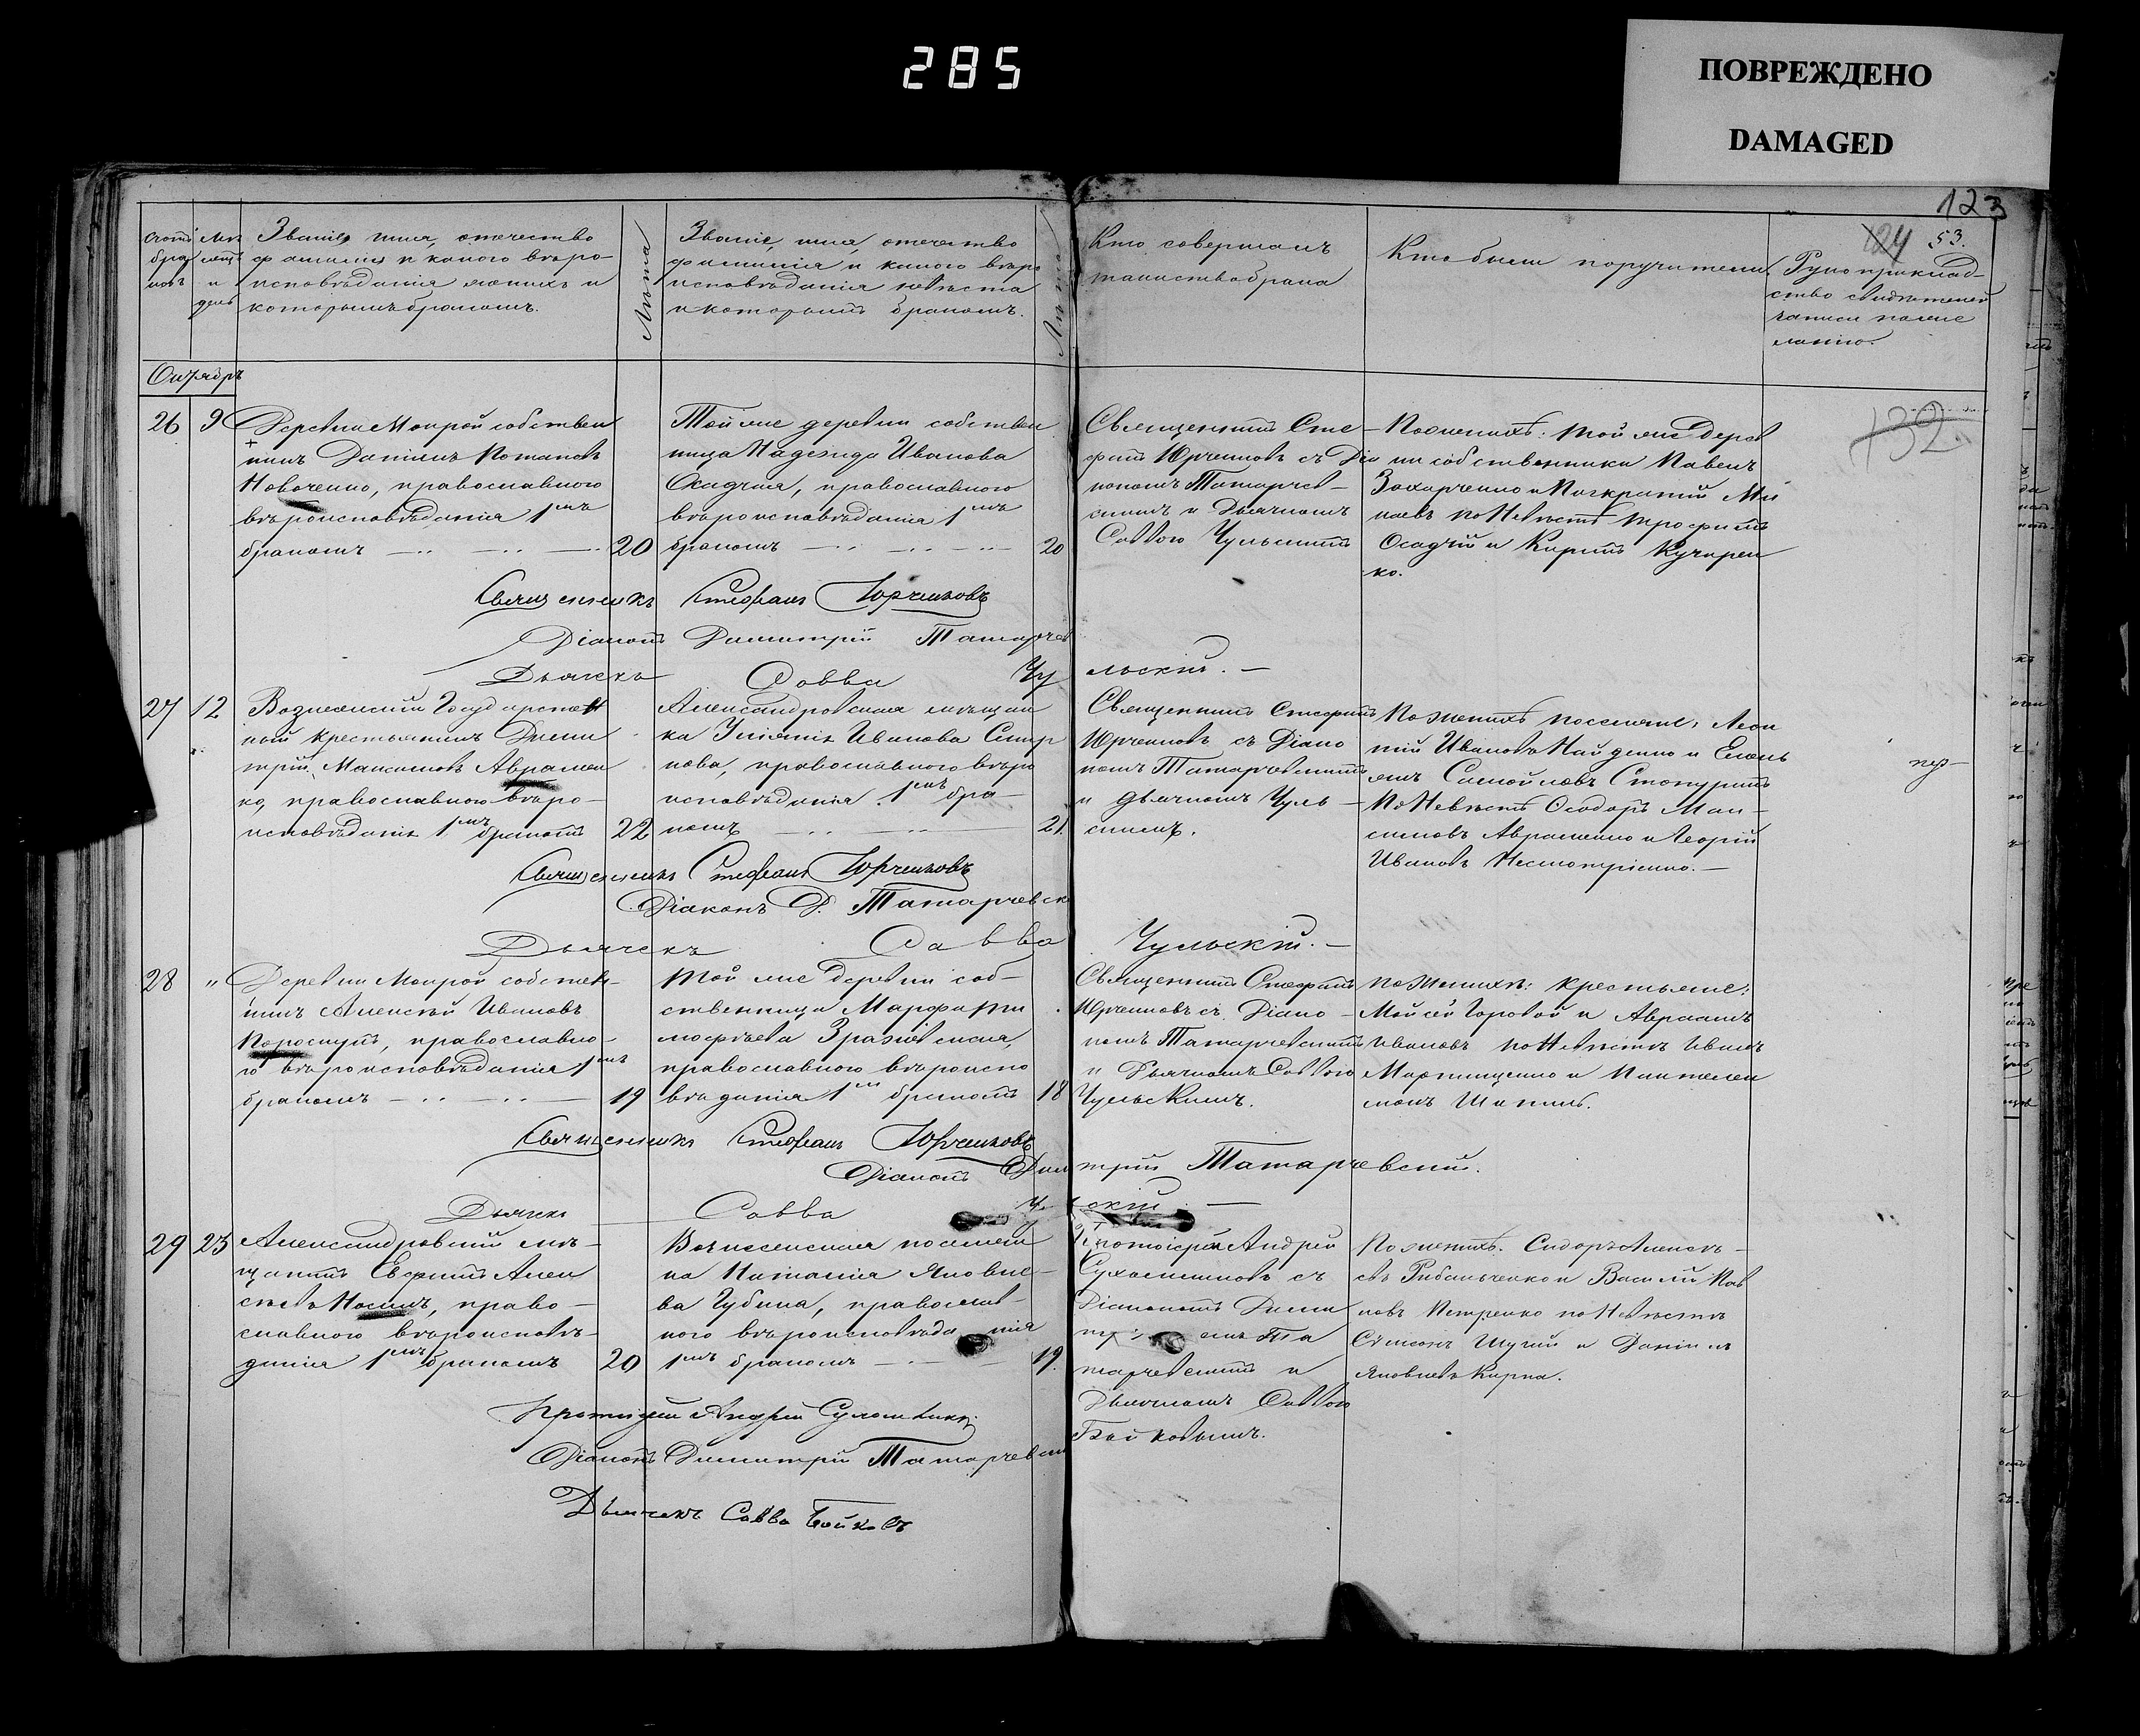 285
ПОВРЕЖДЕНО
DAMAGED
123
124 53.
Счотъ бра ковъ
Мѣ сяцъ и день
Званіе, имя, отечество
фамилія и какого вѣро-
исповѣданія женихъ и
которымъ бракомъ.
Лѣта
Званіе, имя, отечество
фамилія и какого вѣро
исповѣданія невѣста
и которымъ бракомъ.
Лѣта
Кто совершалъ
таинство брака
Кто были поручители
Рукоприклад-
ство свидѣтелей
записи по же
ланію.
Октябрь
26 9
Деревни Мокрой собствен
никъ Даніилъ Романовъ
Новоченко, православного
вѣроисповѣданія 1мъ
бракомъ 20
Той же деревни собствен
ница Надежда Иванова
Осадчая, православного
вѣроисповѣданія 1мъ
бракомъ 20
Священникъ Сте-
фанъ Юрченковъ съ Діа
кономъ Татарчев-
скимъ и Дьячкомъ
Саввою Чульскимъ
По женихѣ: той же дерев
ни собственники Павелъ
Захарченко и Панкратій
по Невѣстѣ Трофимъ
Осадчій и Кирилъ Кучерен
ко.
132
Священникъ Стефанъ Юрченковъ
Діаконъ Димитрій Татарчев
Дьячекъ Савва Чульскій. —
27 12
Вознесенскій Государствен
ный крестьянинъ Дими
трій Максимовъ Авраменко, православного вѣро-
исповѣданія 1мъ бракомъ 22
Александровская мѣщан
ка Іуліанія Иванова Смир
нова, православного вѣро
исповѣданія 1мъ бра-
комъ 21.
Священникъ Стефанъ
Юрченковъ съ Діако
номъ Татарчевскимъ
и дьячкомъ Чуль-
скимъ.
По женихѣ поселяне: Леон
тій Ивановъ Найденко и Емель
янъ Самойловъ
По Невѣстѣ Феодоръ Мак-
симовъ Авраменко и Георгій
Ивановъ
Священникъ Стефанъ Юрченковъ
Діаконъ Д. Татарчевск
Дьячекъ Савва Чульскій. —
28 "
Деревни Мокрой собствен-
никъ Алексѣй Ивановъ
православно-
го вѣроисповѣданія 1мъ
бракомъ 19
Той же деревни соб-
ственница Марфа
православного вѣроиспо
вѣданія 1мъ бракомъ 18
Священникъ Стефанъ
Юрченковъ съ Діако-
номъ Татарчевскимъ
и Дьячкомъ Саввою
Чульскимъ.
по Женихѣ: крестьяне:
Мойсей Горовой и Авраамъ
Ивановъ по Невѣстѣ Иванъ
Мартищенко и Пантелей
монъ
Священникъ Стефанъ Юрченковъ
Діаконъ Димитрій Татарчевскій.
Дьячекъ Савва скій. —
29 23
Александровскій мѣ-
щанинъ Евфимъ Алек
сѣевъ Носикъ, право-
славного вѣроисповѣ-
данія 1мъ бракомъ 20
Вознесенская поселян
ка Наталія Яковле-
ва Губина, православ-
ного вѣроисповѣданія
1мъ бракомъ 19.
Протоіерей Андрей
съ
Діакономъ Дими
Та
тарчевскимъ и
Дьячкомъ Саввою
Бойковымъ.
По женихѣ. Сидоръ Алексѣ-
евъ Рибальченко и Василій
Петренко по Невѣстѣ
и Даніилъ
Яковлевъ Кирпа.
Протоіерей Андрей
Діаконъ Димитрій Татарчевскій
Дьячекъ Савва Бойковъ